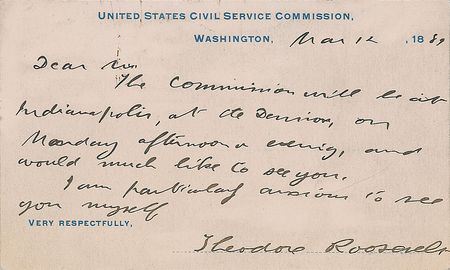 UNITED STATES CIVIL SERVICE COMMISSION,
WASHINGTON, Mar 12, 1889
Dear
The Commission will be at
Indianapolis, at the Denison, on
Monday afternoon & evening, and
would much like to see you.
I am particularly anxious to see
you myself
VERY RESPECTFULLY,
Theodore Roosevelt